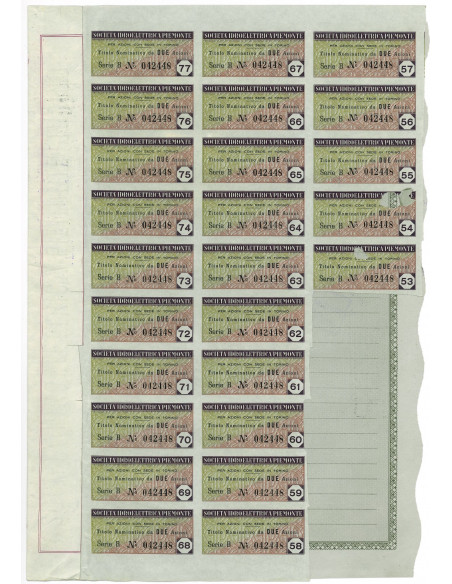 SOCIETÀ IDROELETTRICA PIEMONTE
PER AZIONI CON SEDE IN TORINO
Titolo Nominativo da DUE Azioni
Serie B № 042448 77
SOCIETÀ IDROELETTRICA PIEMONTE
PER AZIONI CON SEDE IN TORINO
Titolo Nominativo da DUE Azioni
Serie B № 042448 67
SOCIETÀ IDROELETTRICA PIEMONTE
PER AZIONI CON SEDE IN TORINO
Titolo Nominativo da DUE Azioni
Serie B № 042448 57
SOCIETÀ IDROELETTRICA PIEMONTE
PER AZIONI CON SEDE IN TORINO
Titolo Nominativo da DUE Azioni
Serie B № 042448 76
SOCIETÀ IDROELETTRICA PIEMONTE
PER AZIONI CON SEDE IN TORINO
Titolo Nominativo da DUE Azioni
Serie B № 042448 66
SOCIETÀ IDROELETTRICA PIEMONTE
PER AZIONI CON SEDE IN TORINO
Titolo Nominativo da DUE Azioni
Serie B № 042448 56
SOCIETÀ IDROELETTRICA PIEMONTE
PER AZIONI CON SEDE IN TORINO
Titolo Nominativo da DUE Azioni
Serie B № 042448 75
SOCIETÀ IDROELETTRICA PIEMONTE
PER AZIONI CON SEDE IN TORINO
Titolo Nominativo da DUE Azioni
Serie B № 042448 65
SOCIETÀ IDROELETTRICA PIEMONTE
PER AZIONI CON SEDE IN TORINO
Titolo Nominativo da DUE Azioni
Serie B № 042448 55
SOCIETÀ IDROELETTRICA PIEMONTE
PER AZIONI CON SEDE IN TORINO
Titolo Nominativo da DUE Azioni
Serie B № 042448 74
SOCIETÀ IDROELETTRICA PIEMONTE
PER AZIONI CON SEDE IN TORINO
Titolo Nominativo da DUE Azioni
Serie B № 042448 64
SOCIETÀ IDROELETTRICA
PER AZIONI CON SEDE IN TORINO
Titolo Nominativo da DUE Azioni
Serie B № 042448 54
SOCIETÀ IDROELETTRICA PIEMONTE
PER AZIONI CON SEDE IN TORINO
Titolo Nominativo da DUE Azioni
Serie B № 042448 73
SOCIETÀ IDROELETTRICA PIEMONTE
PER AZIONI CON SEDE IN TORINO
Titolo Nominativo da DUE Azioni
Serie B № 042448 63
SOCIETÀ IDROELETTRICA PIEMONTE
PER AZIONI CON SEDE IN TORINO
Titolo Nominativo da DUE Azioni
Serie B № 042448 53
SOCIETÀ IDROELETTRICA PIEMONTE
PER AZIONI CON SEDE IN TORINO
Titolo Nominativo da DUE Azioni
Serie B № 042448 72
SOCIETÀ IDROELETTRICA PIEMONTE
PER AZIONI CON SEDE IN TORINO
Titolo Nominativo da DUE Azioni
Serie B № 042448 62
SOCIETÀ IDROELETTRICA PIEMONTE
PER AZIONI CON SEDE IN TORINO
Titolo Nominativo da DUE Azioni
Serie B № 042448 71
SOCIETÀ IDROELETTRICA PIEMONTE
PER AZIONI CON SEDE IN TORINO
Titolo Nominativo da DUE Azioni
Serie B № 042448 61
SOCIETÀ IDROELETTRICA PIEMONTE
PER AZIONI CON SEDE IN TORINO
Titolo Nominativo da DUE Azioni
Serie B № 042448 70
SOCIETÀ IDROELETTRICA PIEMONTE
PER AZIONI CON SEDE IN TORINO
Titolo Nominativo da DUE Azioni
Serie B № 042448 60
SOCIETÀ IDROELETTRICA PIEMONTE
PER AZIONI CON SEDE IN TORINO
Titolo Nominativo da DUE Azioni
Serie B № 042448 69
SOCIETÀ IDROELETTRICA PIEMONTE
PER AZIONI CON SEDE IN TORINO
Titolo Nominativo da DUE Azioni
Serie B № 042448 59
SOCIETÀ IDROELETTRICA PIEMONTE
PER AZIONI CON SEDE IN TORINO
Titolo Nominativo da DUE Azioni
Serie B № 042448 68
SOCIETÀ IDROELETTRICA PIEMONTE
PER AZIONI CON SEDE IN TORINO
Titolo Nominativo da DUE Azioni
Serie B № 042448 58